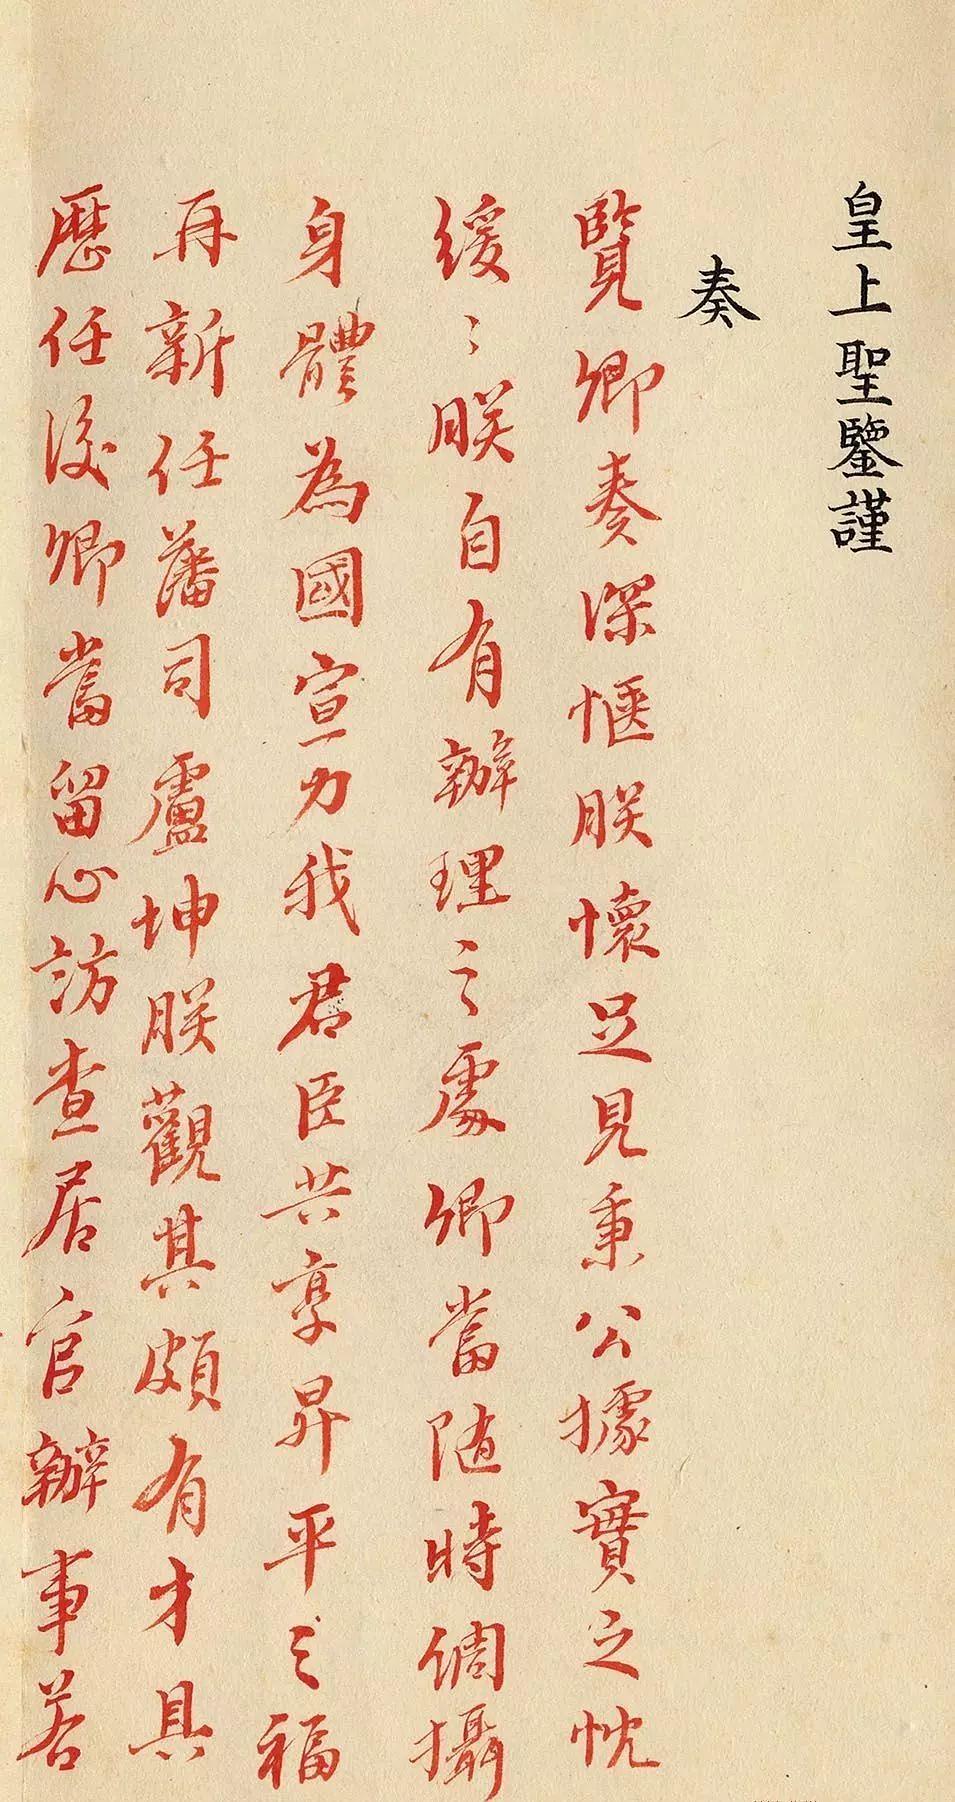 皇上聖鑒謹
奏
覽卿奏深愜朕懷足見秉公據實之忱
緩〻朕自有辦理之處卿當随時倜攝
身體為國宣力我君臣共享昇平之福
再新任藩司盧坤朕觀其頗有才具
歷任後卿當留心訪查居官辦事若